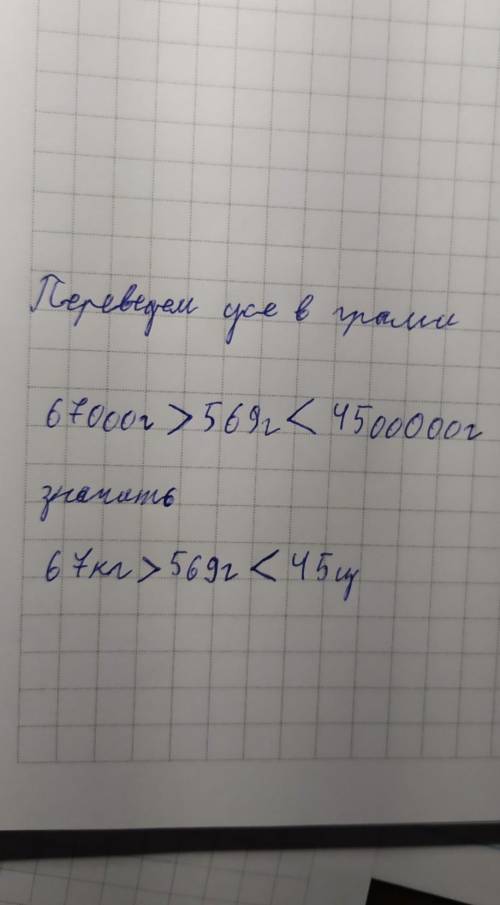 Переведем усе в грами
67000г > 569г < 4500000г
значить
67кг > 569г < 45ц